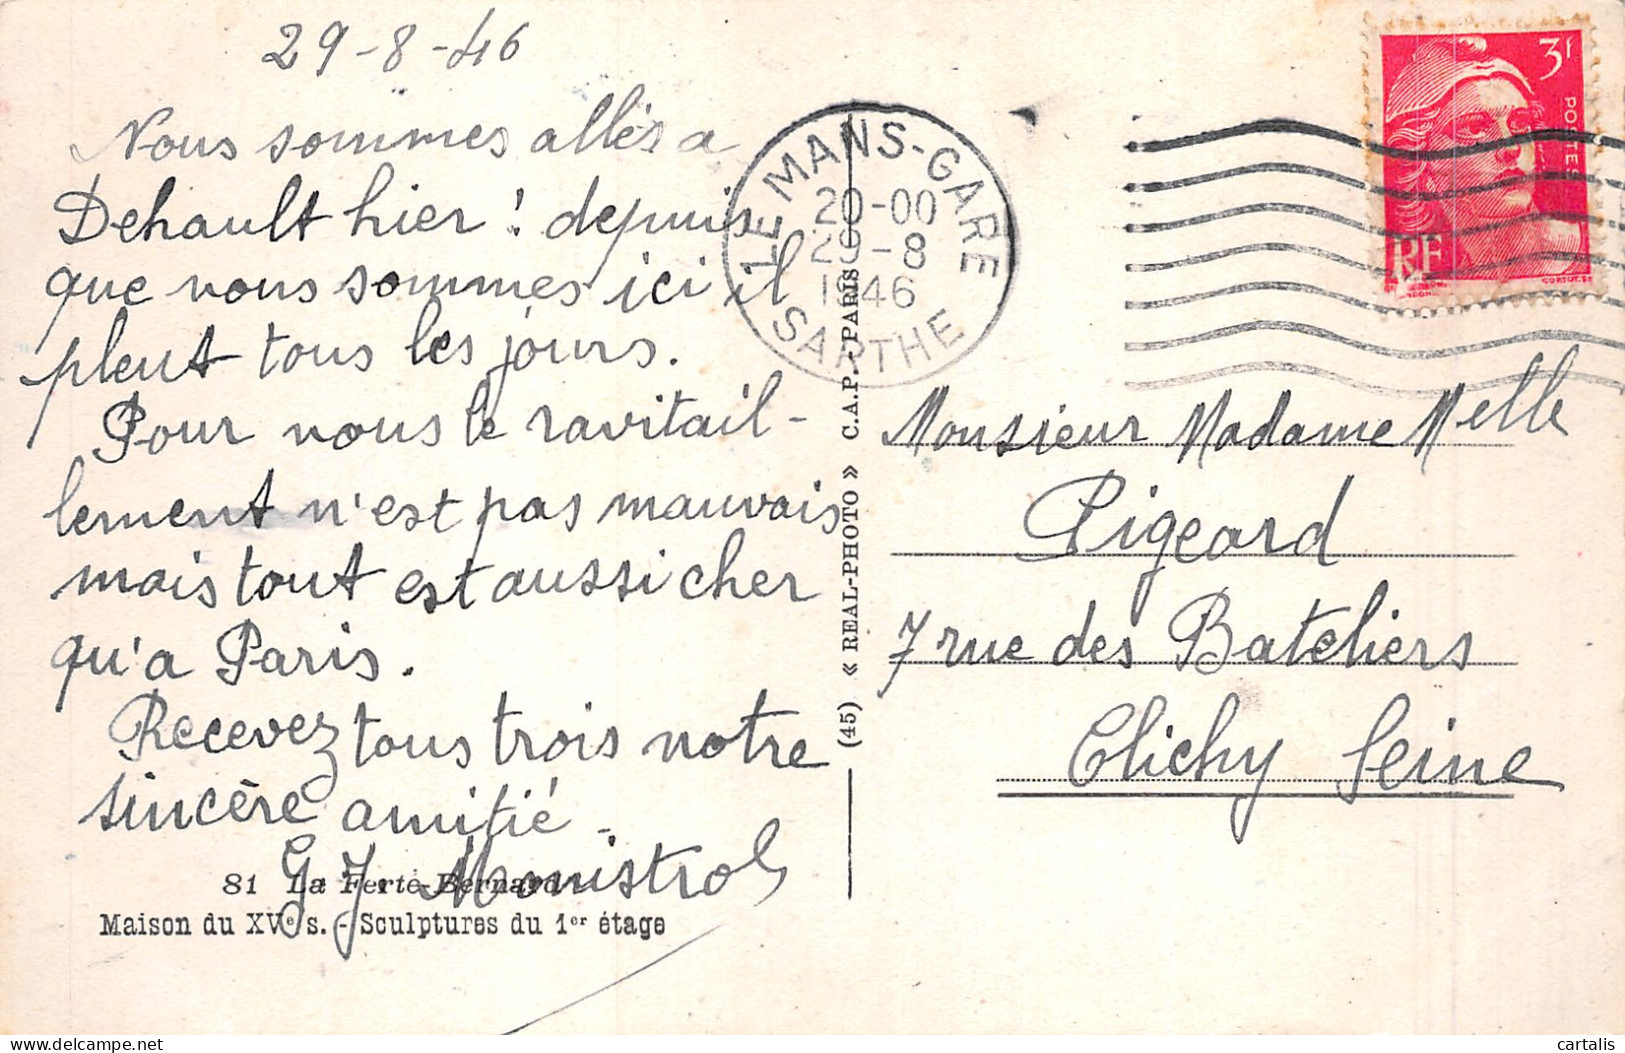 29-8-46
Nous sommes allés a
Dehault hier ! depuis
que nous sommes ici il
pleut tous les jours.
Pour nous le ravitail-
lement n'est pas mauvais
mais tout est aussi cher
qu'a Paris.
Recevez tous trois notre
sincère amitié.
G. J. Monistrol
81 La Ferté-Bernard
Maison du XVe s. - Sculptures du 1er étage
(45) « REAL-PHOTO » C.A.P. - PARIS
LE MANS-GARE
20-00
29-8
1946
SARTHE
3f
POSTES
RF
Monsieur Madame Melle
Pigeard
7 rue des Bateliers
Clichy Seine
cartalis